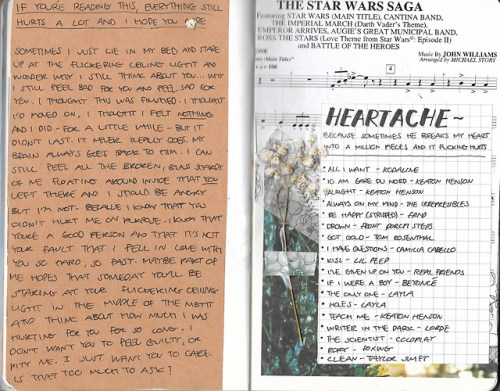 IF YOU'RE READING THIS, EVERYTHING STILL
HURTS A LOT AND I HOPE YOU ARE
SOMETIMES I JUST LIE IN MY BED AND STARE
UP AT THE FLICKERING CEILING LIGHT AND
WONDER WHY I STILL THINK ABOUT YOU... WHY
I STILL FEEL BAD FOR YOU AND FEEL SAD FOR
YOU. I THOUGHT THIS WAS FINISHED. I THOUGHT
I'D MOVED ON, I THOUGHT I FELT NOTHING
AND I DID - FOR A LITTLE WHILE - BUT IT
DIDN'T LAST. IT NEVER REALLY DOES. MY
BRAIN ALWAYS GOES BACK TO HIM. I CAN
STILL FEEL ALL THE BROKEN, SHARDS
OF ME FLOATING AROUND INSIDE THAT YOU
LEFT THERE AND I SHOULD BE ANGRY
BUT I'M NOT. BECAUSE I KNOW THAT YOU
DIDN'T HURT ME ON PURPOSE. I KNOW THAT
YOU'RE A GOOD PERSON AND THAT IT'S NOT
YOUR FAULT THAT I FELL IN LOVE WITH
YOU SO HARD, SO FAST. MAYBE PART OF
ME HOPES THAT SOMEDAY YOU'LL BE
STARING AT YOUR FLICKERING CEILING
LIGHT IN THE MIDDLE OF THE NIGHT
AND THINK ABOUT HOW MUCH I WAS
HURTING FOR YOU FOR SO LONG. I
DON'T WANT YOU TO FEEL GUILTY, OR
PITY ME. I JUST WANT YOU TO CARE.
IS THAT TOO MUCH TO ASK?
THE STAR WARS SAGA
Featuring STAR WARS (MAIN TITLE), CANTINA BAND,
THE IMPERIAL MARCH (Darth Vader's Theme),
EMPEROR ARRIVES, AUGIE'S GREAT MUNICIPAL BAND,
ROSS THE STARS (Love Theme from Star Wars: Episode II)
and BATTLE OF THE HEROES
Music By JOHN WILLIAMS
Arranged by MICHAEL STORY
Main Title")
4
HEARTACHE~
BECAUSE SOMETIMES HE BREAKS MY HEART
INTO A MILLION PIECES AND IT FUCKING HURTS
• ALL I WANT - KODALINE
• 10 AM GARE DU NORD - KEATON HENSON
• ALRIGHT - KEATON HENSON
• ALWAYS ON MY MIND - THE IRREPRESSIBLES
• BE HAPPY (STRIPPED) -
• DROWN - FRONT PORCH STEPS
• GOT GOLD - TOM ROSENTHAL
• I HAVE QUESTIONS - CAMILA CABELLO
• KISS - LIL PEEP
• I'VE GIVEN UP ON YOU - REAL FRIENDS
• IF I WERE A BOY - BEYONCÉ
• THE ONLY ONE - LAYLA
• HOLES - LAYLA
• TEACH ME - KEATON HENSON
• WRITER IN THE DARK - LORDE
• THE SCIENTIST - COLDPLAY
• FOXING
• CLEAN - TAYLOR SWIFT